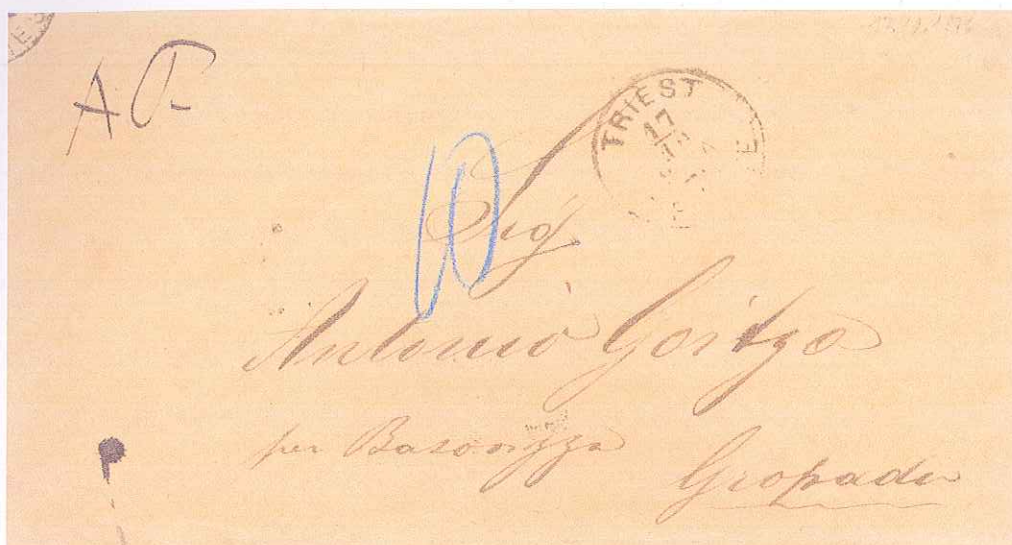 A P
TRIEST
17
10
Sig.
Antonio Goritza
per Basovizza
Gropada